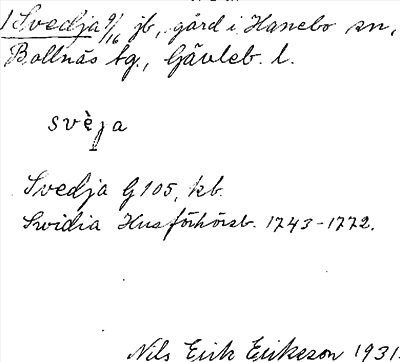 1 Svedja 9/16 jb, gård i Hanebo sn,
Bollnäs tg., Gävleb. l.
svèja
Svedja G105, kb.
Swidia Husförhörsb. 1743-1772.
Nils Erik Erikson 1931.